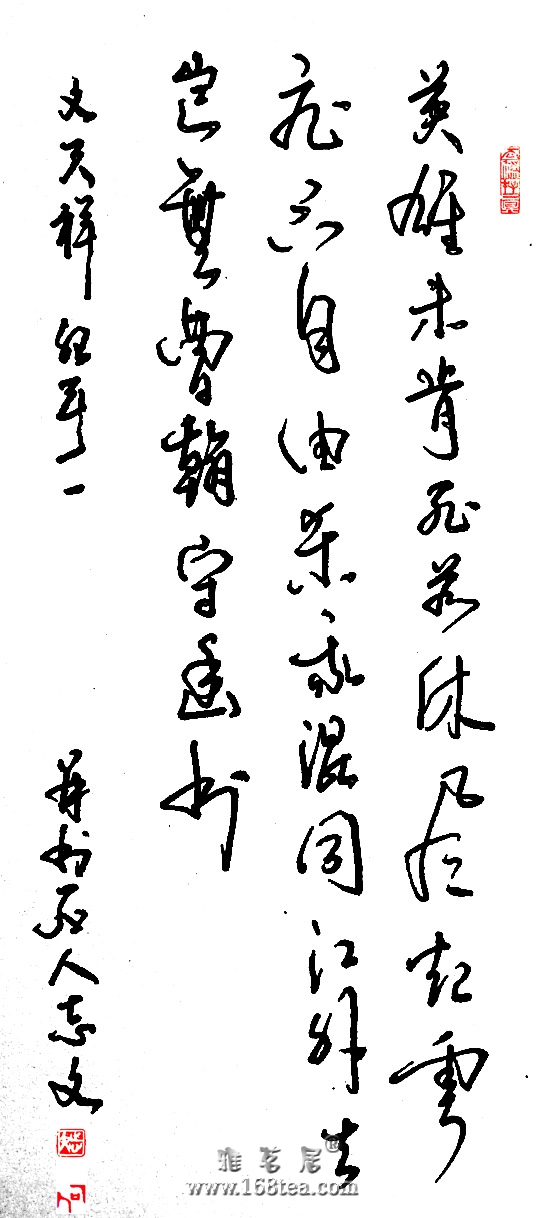 英雄未肯死前休風起雲
飛不自由殺我混同江外去
豈無曹翰守幽州
文天祥 纪事一
人志文
雅茗居®
www.168tea.com